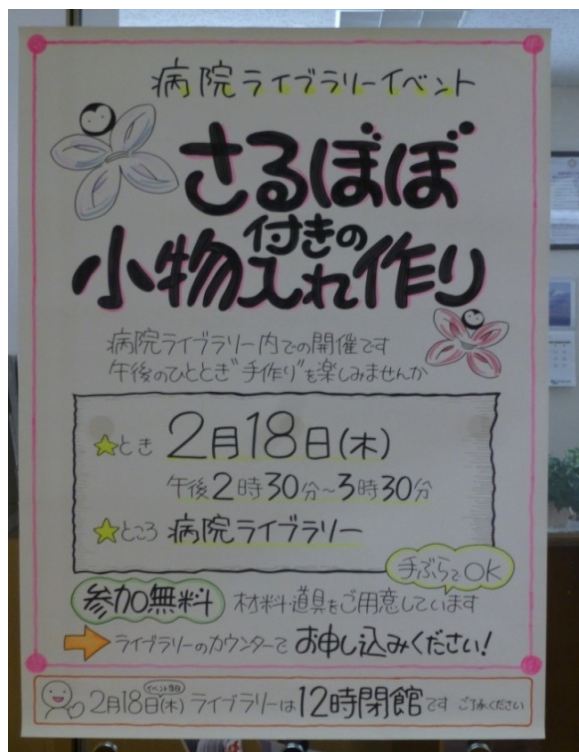 病院ライブラリーイベント
さるぼぼ
付きの
小物入れ作り
病院ライブラリー内での開催です
午後のひととき"手作り"を楽しみませんか
とき 2月18日(木)
午後2時30分~3時30分
ところ 病院ライブラリー
手ぶらでOK
参加無料 材料・道具をご用意しています
ライブラリーのカウンターで お申し込みください!
イベント当日
2月18日(木) ライブラリーは12時閉館です ご了承ください